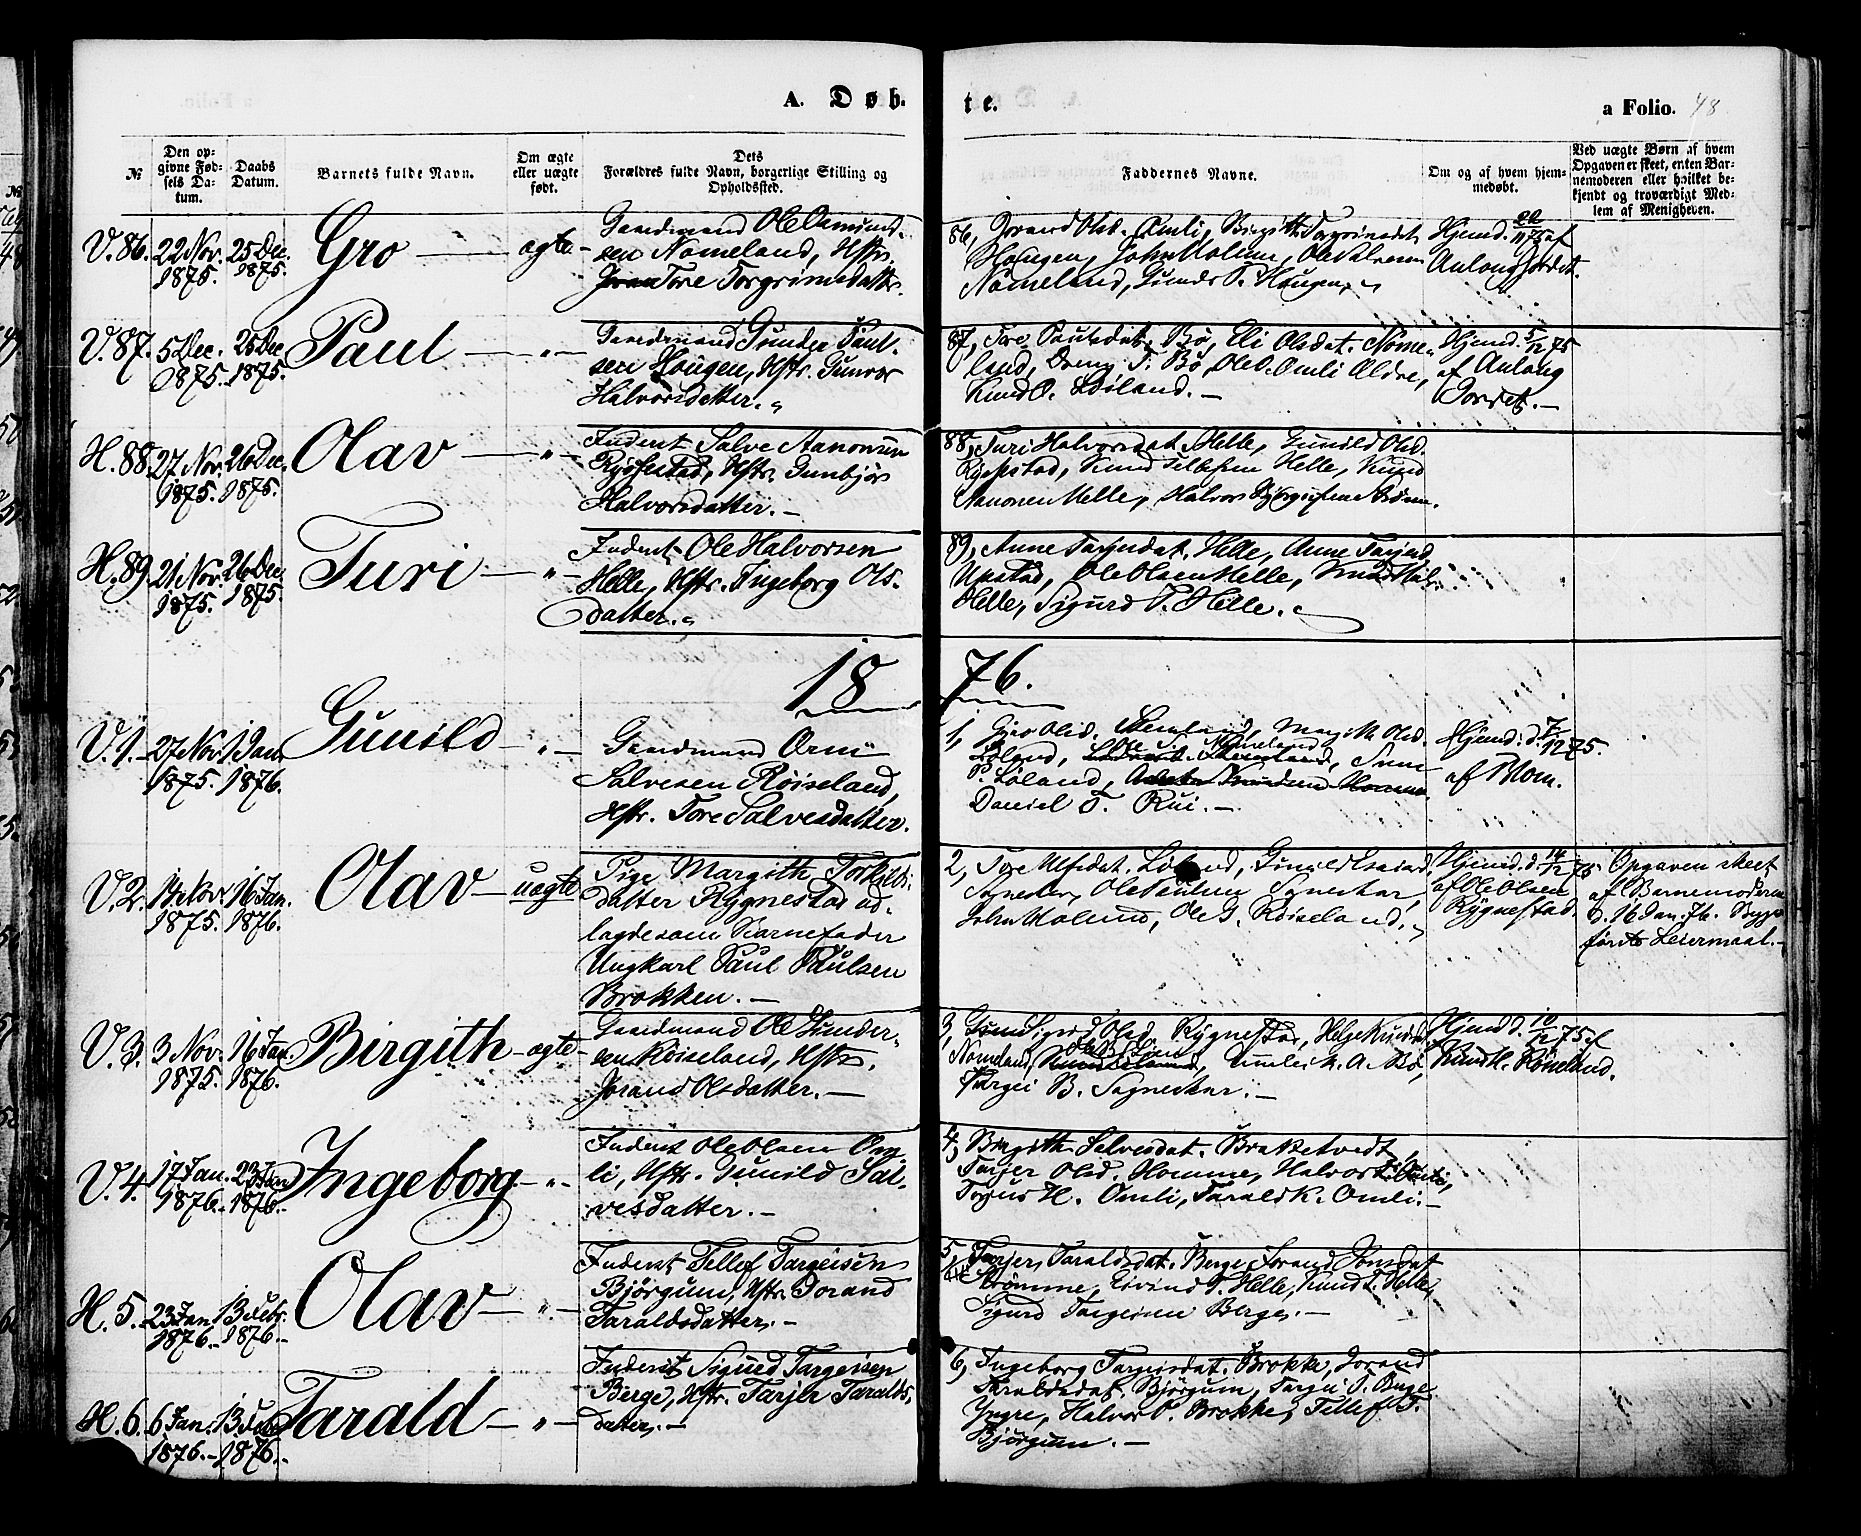 A. Døb.
te.
a Folio. 48
№
Den op-
givne Fød-
sels Da-
tum.
Daabs
Datum.
Barnets fulde Navn.
Om ægte
eller uægte
født.
Dets
Forældres fulde Navn, borgerlige Stilling og
Opholdssted.
Faddernes Navne.
Om og af hvem hjem-
medøbt.
Ved uægte Børn af hvem
Opgaven er skeet, enten Bar-
nemoderen eller hvilket be-
kjendt og troværdigt Med-
lem af Menigheden.
V. 86. 22 Nov. 1875. 25 Dec. 1875. Gro ægte
Gaardmand Ole Osmund-
sen Nomeland, Hstr.
Tore Torgrimsdatter.
86, Jorand Olsd. Omli, Birgith Torgrimsdat.
Hougen, John Molund, Ole Salvesen
Nomeland, Gunder P. Hougen.
Hjemd. 22/11 75 af
Aulong Jordet.
V. 87. 5 Dec. 1875. 25 Dec. 1875. Paul — „ —
Gaardmand Gunder Paul-
sen Hougen, Hstr. Gunvor
Halvorsdatter.
87, Tore Paulsdat. Bø, Eli Olsdat. Nome-
land, Dreng T. Bø, Ole O. Omli Ældre,
Knud O. Løiland. —
Hjemd. 5/12 75
af Aulong
Jordet. —
H. 88. 27 Nov. 1875. 26 Dec. 1875. Olav — „ —
Inderst Salve Aanonsen
Rysstad, Hstr. Gunbjør
Halvorsdatter. —
88, Turi Halvorsdat. Helle, Gunild Olsd.
Rysstad, Knud Tellefsen Helle, Knud
Aanonsen Helle, Halvor Bjørgufsen
H. 89. 21 Nov. 1875. 26 Dec. 1875. Turi — „ —
Inderst Ole Halvorsen
Helle, Hstr. Ingeborg Ols-
datter.
89, Anne Tarjeidat. Helle, Anne Tarjeid.
Upstad, Ole Olsen Helle, Knud
Helle, Sigurd P. Helle.
18 76.
V. 1. 27 Nov. 1875. 1 Jan. 1876. Gunild — „ —
Gaardmand Orm
Salvesen Røiseland,
Hstr. Tore Salvesdatter.
1, Gjero Olsd. Margith Olsd.
Løland, Ole S. Nomeland,
P. Løland,
Daniel T. Rui. —
Hjemd. d. 7/12 75.
af Mom.
V. 2. 14 Nov. 1875. 16 Jan. 1876. Olav uægte
Pige Margith Torkilds-
datter Rygnestad ud-
lagde som Barnefader
Ungkarl Paul Paulsen
Brokken. —
2, Tore Ulfsdat. Løland, Gunild
Sagneskar, Ole Paulsen Sagneskar,
John Moland, Ole G. Røiseland.
Hjemd. d. 14/12 75
af Ole Olsen
Rygnestad.
Opgaven skeet
af Barnemoderen
d. 16 Jan. 76. Begges
første Leiermaal. —
V. 3. 3 Nov. 1875. 16 Jan. 1876. Birgith — ægte
Gaardmand Ole Gunder-
sen Røiseland, Hstr.
Jorand Olsdatter. —
3, Sigrid Olsd. Rygnestad, Helge Knudsd.
Nomeland, A. Bø,
Targei B. Sagneskar. —
Hjemd. d. 10/12 75 af
Knud H. Røiseland.
V. 4. 17 Jan. 1876. 23 Jan. 1876. Ingeborg — „ —
Inderst Ole Olsen Om-
li, Hstr. Gunild Sal-
vesdatter. —
4, Birgith Salvesdat. Brakketvedt,
Tarjer Olsd. Homme, Halvor Omli,
Torjus H. Omli, Tarald K. Omli. —
H. 5. 23 Jan. 1876. 13 Febr. 1876. Olav — „ —
Inderst Tellef Targeisen
Bjørgum, Hstr. Jorand
Taraldsdatter. —
5, Tarjer Taraldsdat. Berge, Jorand Jonsdat.
Strømme, Eivind T. Helle, Knud T. Helle,
Sigurd Targeisen Berge. —
H. 6. 6 Jan. 1876. 13 Febr. 1876. Tarald — „ —
Inderst Sigurd Targeisen
Berge, Hstr. Tarjer Taralds-
datter. —
6, Ingeborg Targeisdat. Brokke, Jorand
Taraldsdat. Bjørgum, Targei S. Berge
Yngre, Halvor P. Brokke, Tellef T.
Bjørgum. —